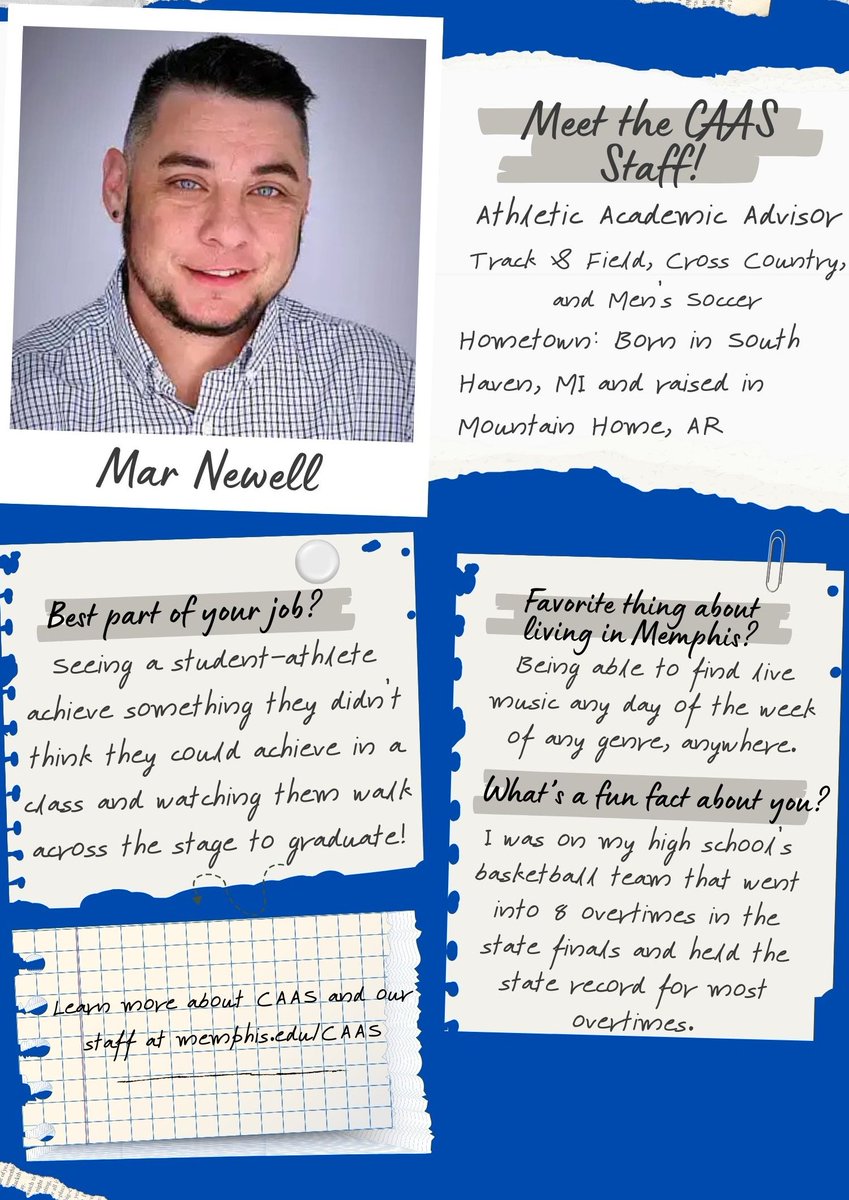 Meet the CAAS
Staff!
Athletic Academic Advisor
Track & Field, Cross Country,
and Men's Soccer
Hometown: Born in South
Haven, MI and raised in
Mountain Home, AR
Mar Newell
Best part of your job?
Seeing a student-athlete
achieve something they didn't
think they could achieve in a
class and watching them walk
across the stage to graduate!
Favorite thing about
living in Memphis?
Being able to find live
music any day of the week
of any genre, anywhere.
What's a fun fact about you?
I was on my high school's
basketball team that went
into 8 overtimes in the
state finals and held the
state record for most
overtimes.
Learn more about CAAS and our
staff at memphis.edu/CAAS